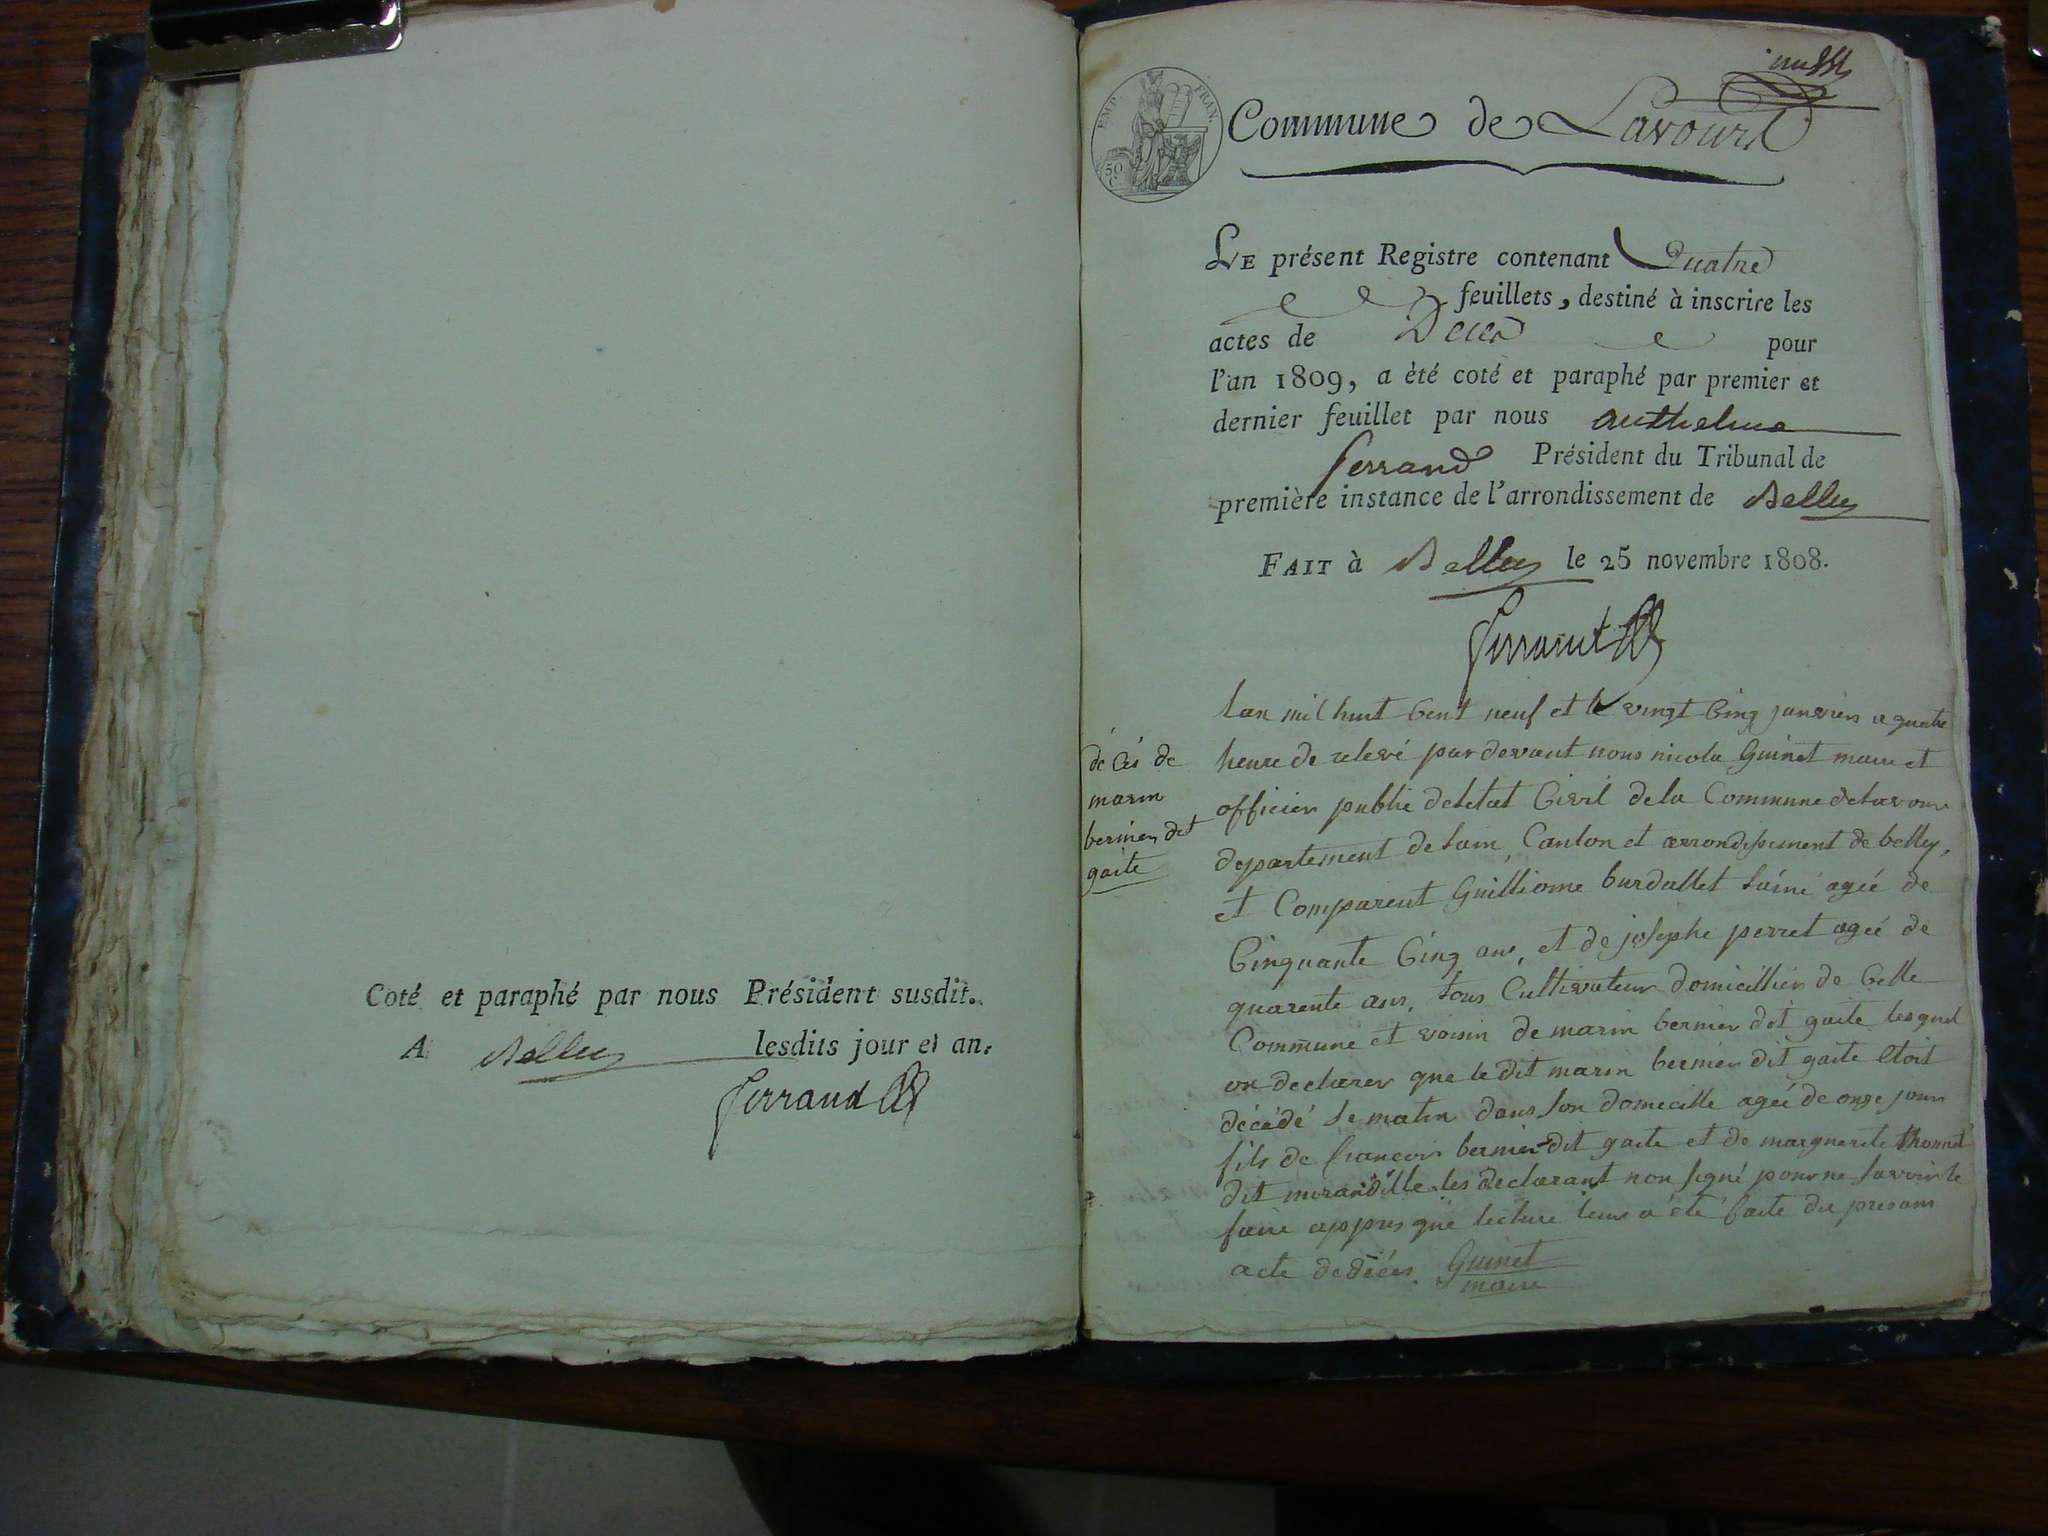 Coté et paraphé par nous Président susdit.
A Belley lesdits jour et an.
Ferrand
EMP. FRAN.
50
C.
Commune de Lavours
LE présent Registre contenant Quatre
feuillets, destiné à inscrire les
actes de Décès pour
l'an 1809, a été coté et paraphé par premier et
dernier feuillet par nous Anthelme
ferrand Président du Tribunal de
première instance de l'arrondissement de Belley
FAIT à Belley le 25 novembre 1808.
Ferrand
décés de
marin
bernier dit
gaite
lan mil huit Cent neuf et le vingt Cinq janvier a quatre
heure de relevé pardevant nous nicola Guinet maire et
officier public deletat Civil dela Commune delavour
departement delain, Canton et arrondissement de belley,
et Comparent Guilliome burdallet lainé ageé de
Cinquante Cinq ans, et de josephe perret ageé de
quarente ans, tous Cultivateur domicillier de Celle
Commune et voisin de marin bernier dit gaite lesquel
on declarer que le dit marin bernier dit gaite Etoit
décédé le matin dans son domicille ageé de onze jours
fils de francois bernier dit gaite et de marguerite thonnet
dit mirandille les declarant non signé pour ne savoir le
faire appres que lecture leur a été faite du presans
acte de décés. Guinet
maire